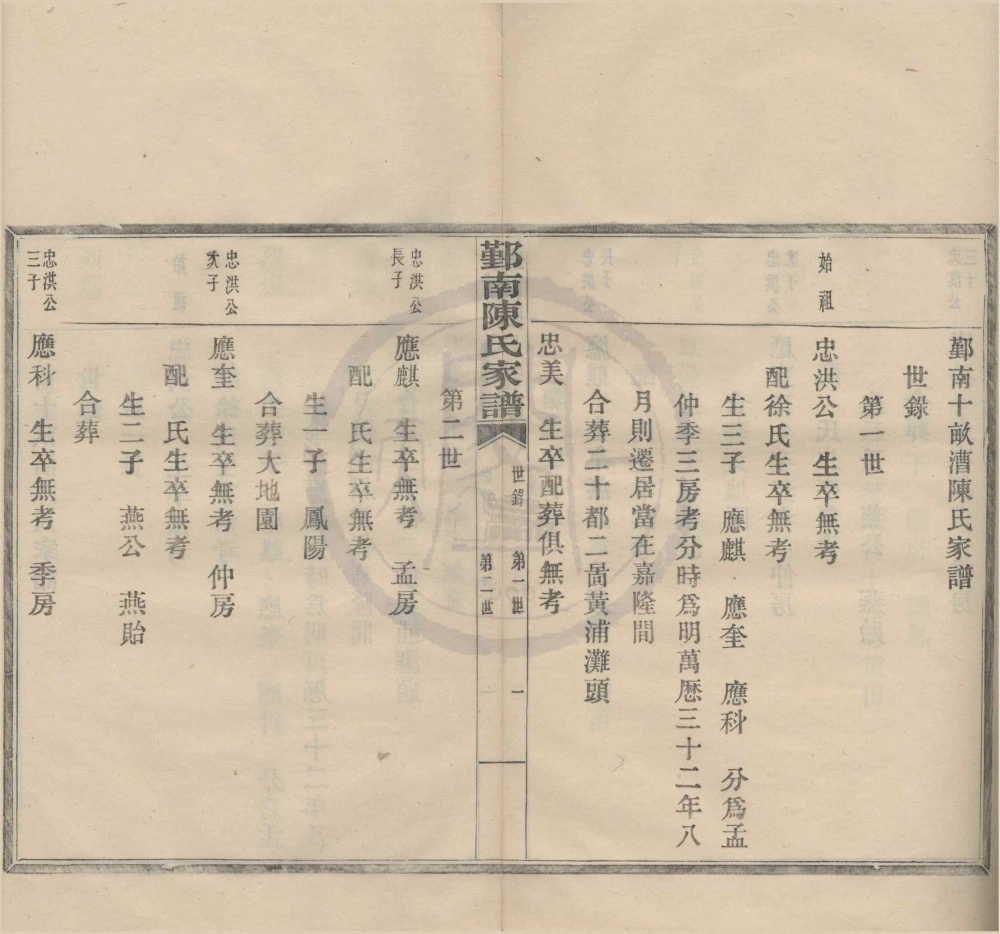 鄞南十畝漕陳氏家譜
世錄
第一世
始祖
忠洪公 生卒無考
配徐氏生卒無考
生三子 應麒 應奎 應科 分爲孟
仲季三房考分時爲明萬曆三十二年八
月則遷居當在嘉隆間
合葬二十都二啚黃浦灘頭
忠美 生卒配葬俱無考
鄞南陳氏家譜
世錄 第一世 一
第二世
第二世
忠洪公
長子
應麒 生卒無考 孟房
配 氏生卒無考
生一子 鳳陽
合葬大地園
忠洪公
次子
應奎 生卒無考 仲房
配 氏生卒無考
生二子 燕公 燕貽
合葬
忠洪公
三子
應科 生卒無考 季房